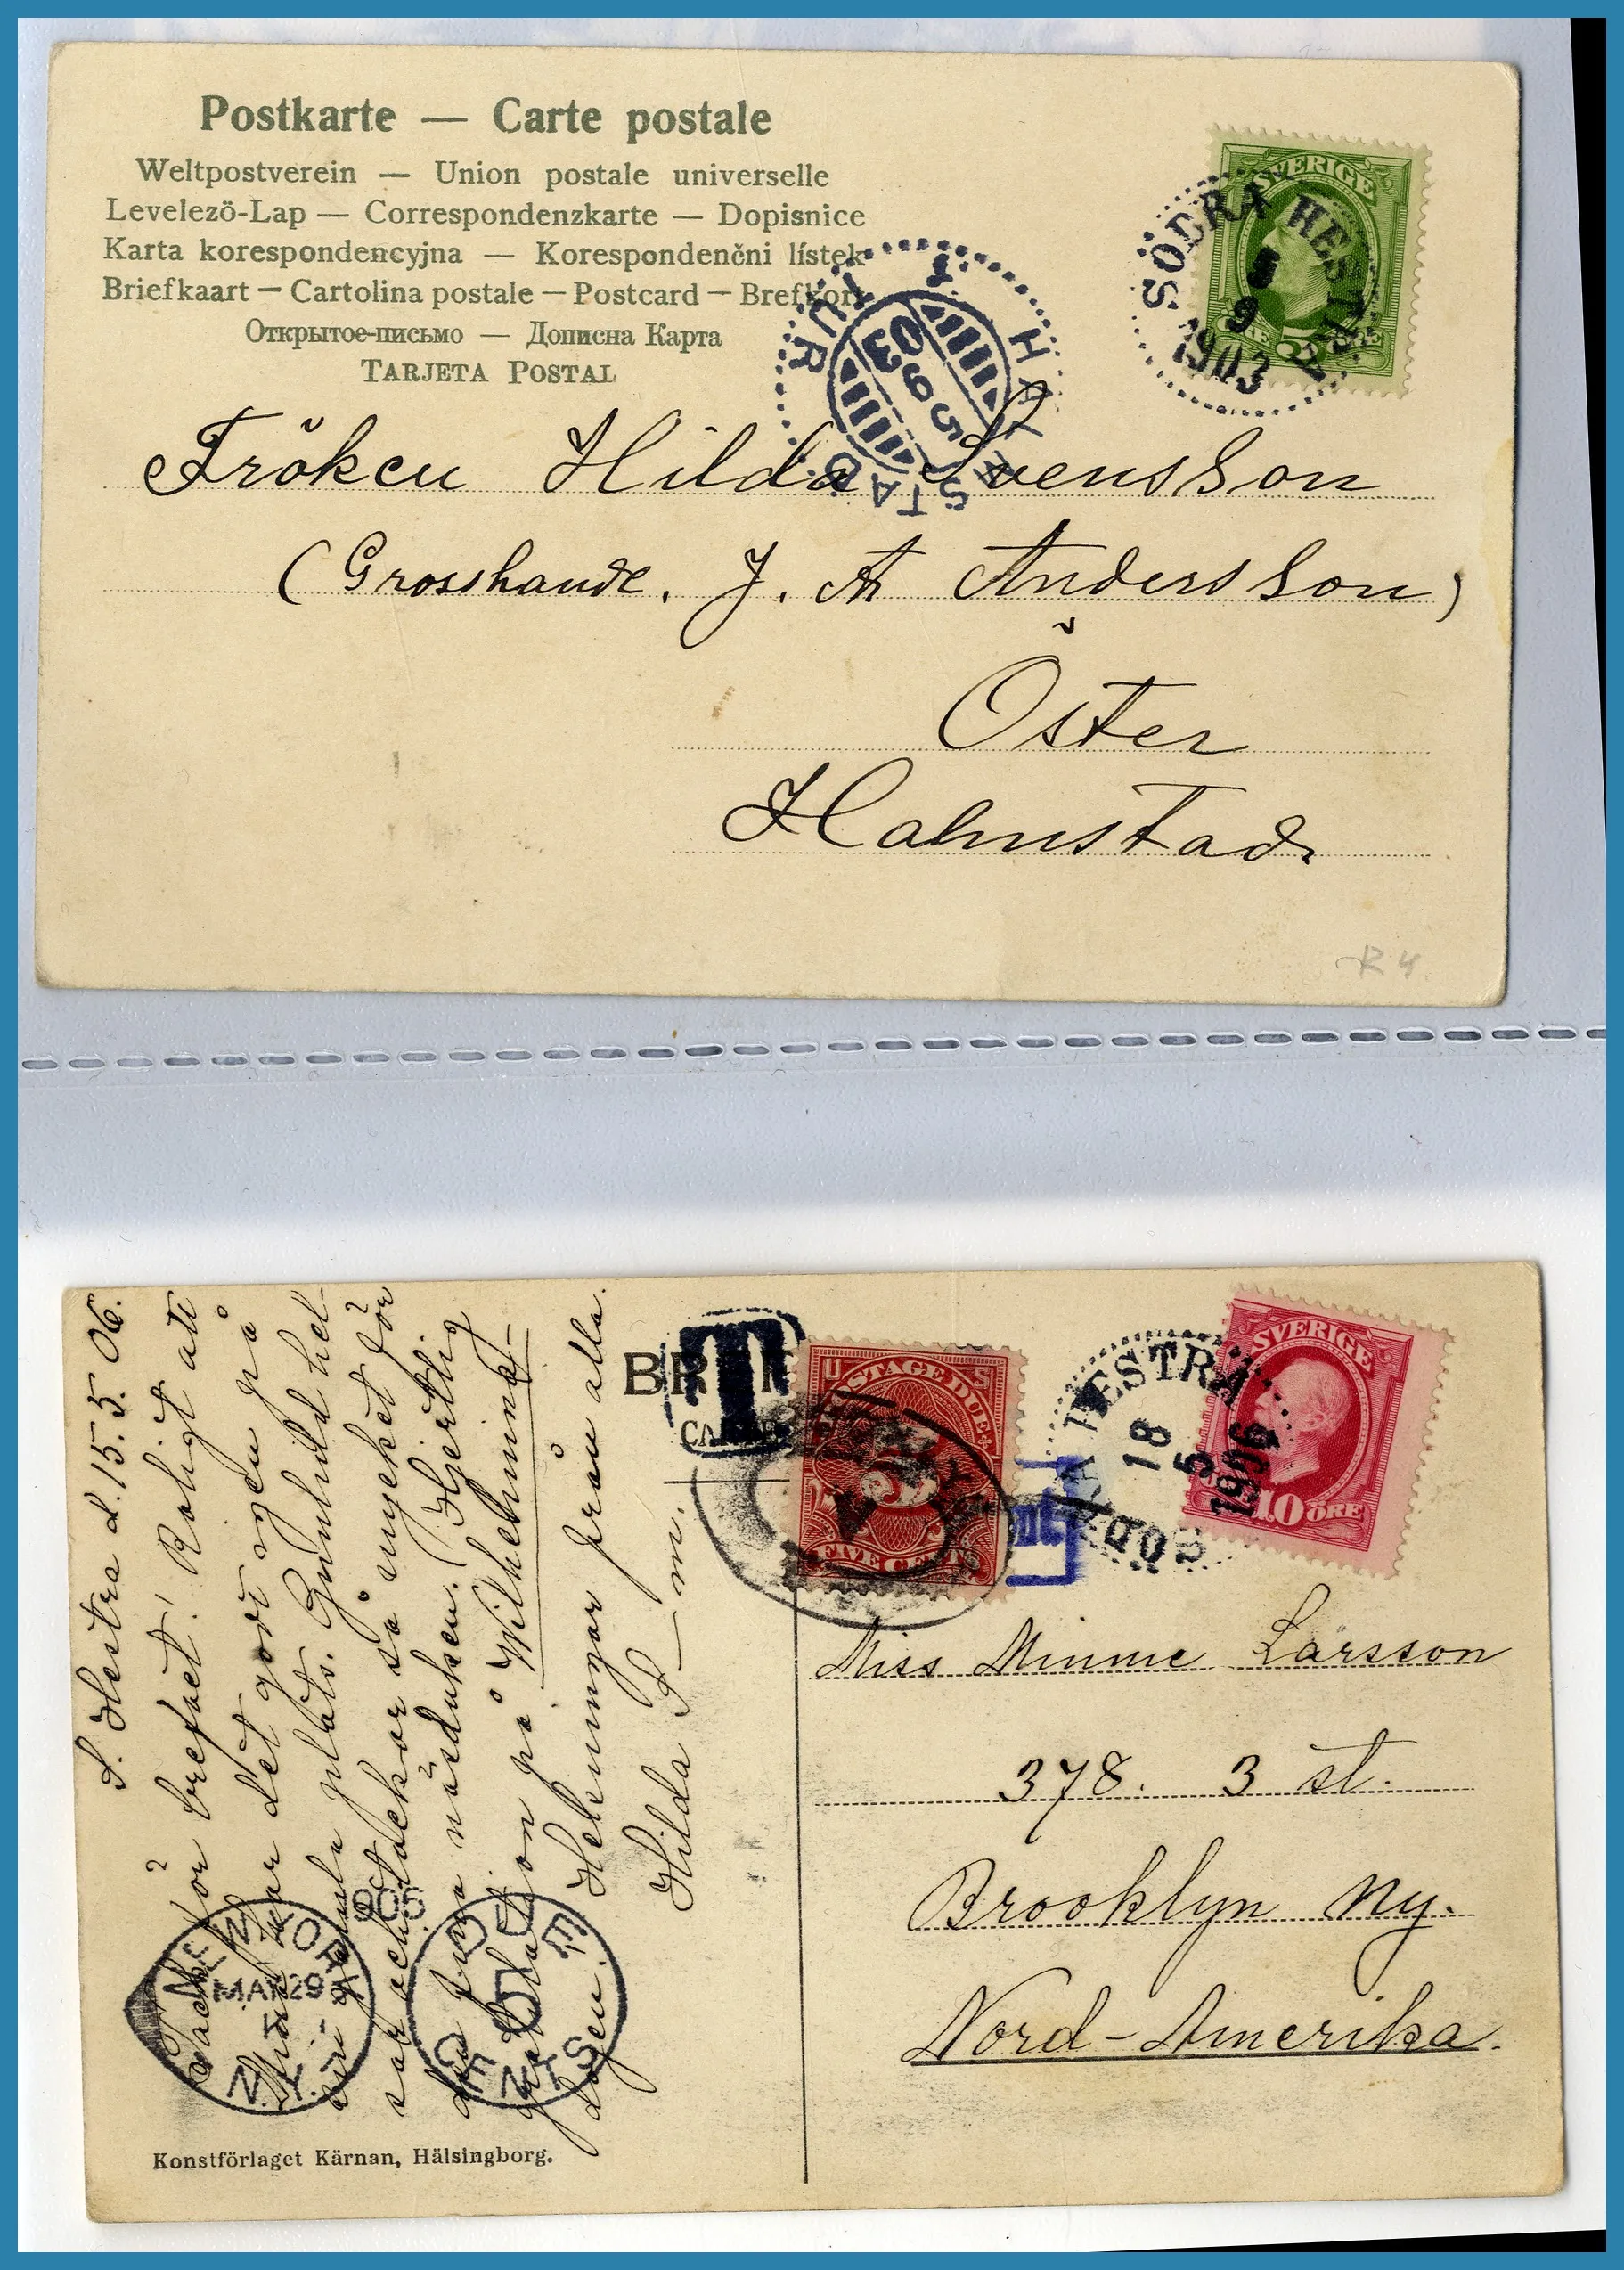 Postkarte — Carte postale
Weltpostverein — Union postale universelle
Levelezö-Lap — Correspondenzkarte — Dopisnice
Karta korespondencyjna — Korespondenčni lístek
Briefkaart — Cartolina postale — Postcard — Brefkort
Открытое-письмо — Дописна Карта
TARJETA POSTAL
SVERIGE
SÖDRA HESTRA
5
9
1903
HALMSTAD
5 9 03
Fröken Hilda Svensson
(Grosshandl. J. A Andersson)
Öster
Halmstad
R 4.
S. Hestra d. 15. 5. 06.
Tack för brefvet! Roligt att
har det godt igen på
plats. Gunhild hel-
sar och tackar så mycket för
den fina näsduken. (Hjertlig
på Wilhelmina-
dagen. Helsningar från alla.
Hilda S—n.
T
U S
POSTAGE DUE
5
FIVE CENTS
SÖDRA HESTRA
18
5
1906
SVERIGE
10 ÖRE
Miss Minnie Larsson
378. 3 st.
Brooklyn Ny.
Nord-Amerika.
NEW YORK
N.Y.
DUE
5
CENTS
Konstförlaget Kärnan, Hälsingborg.